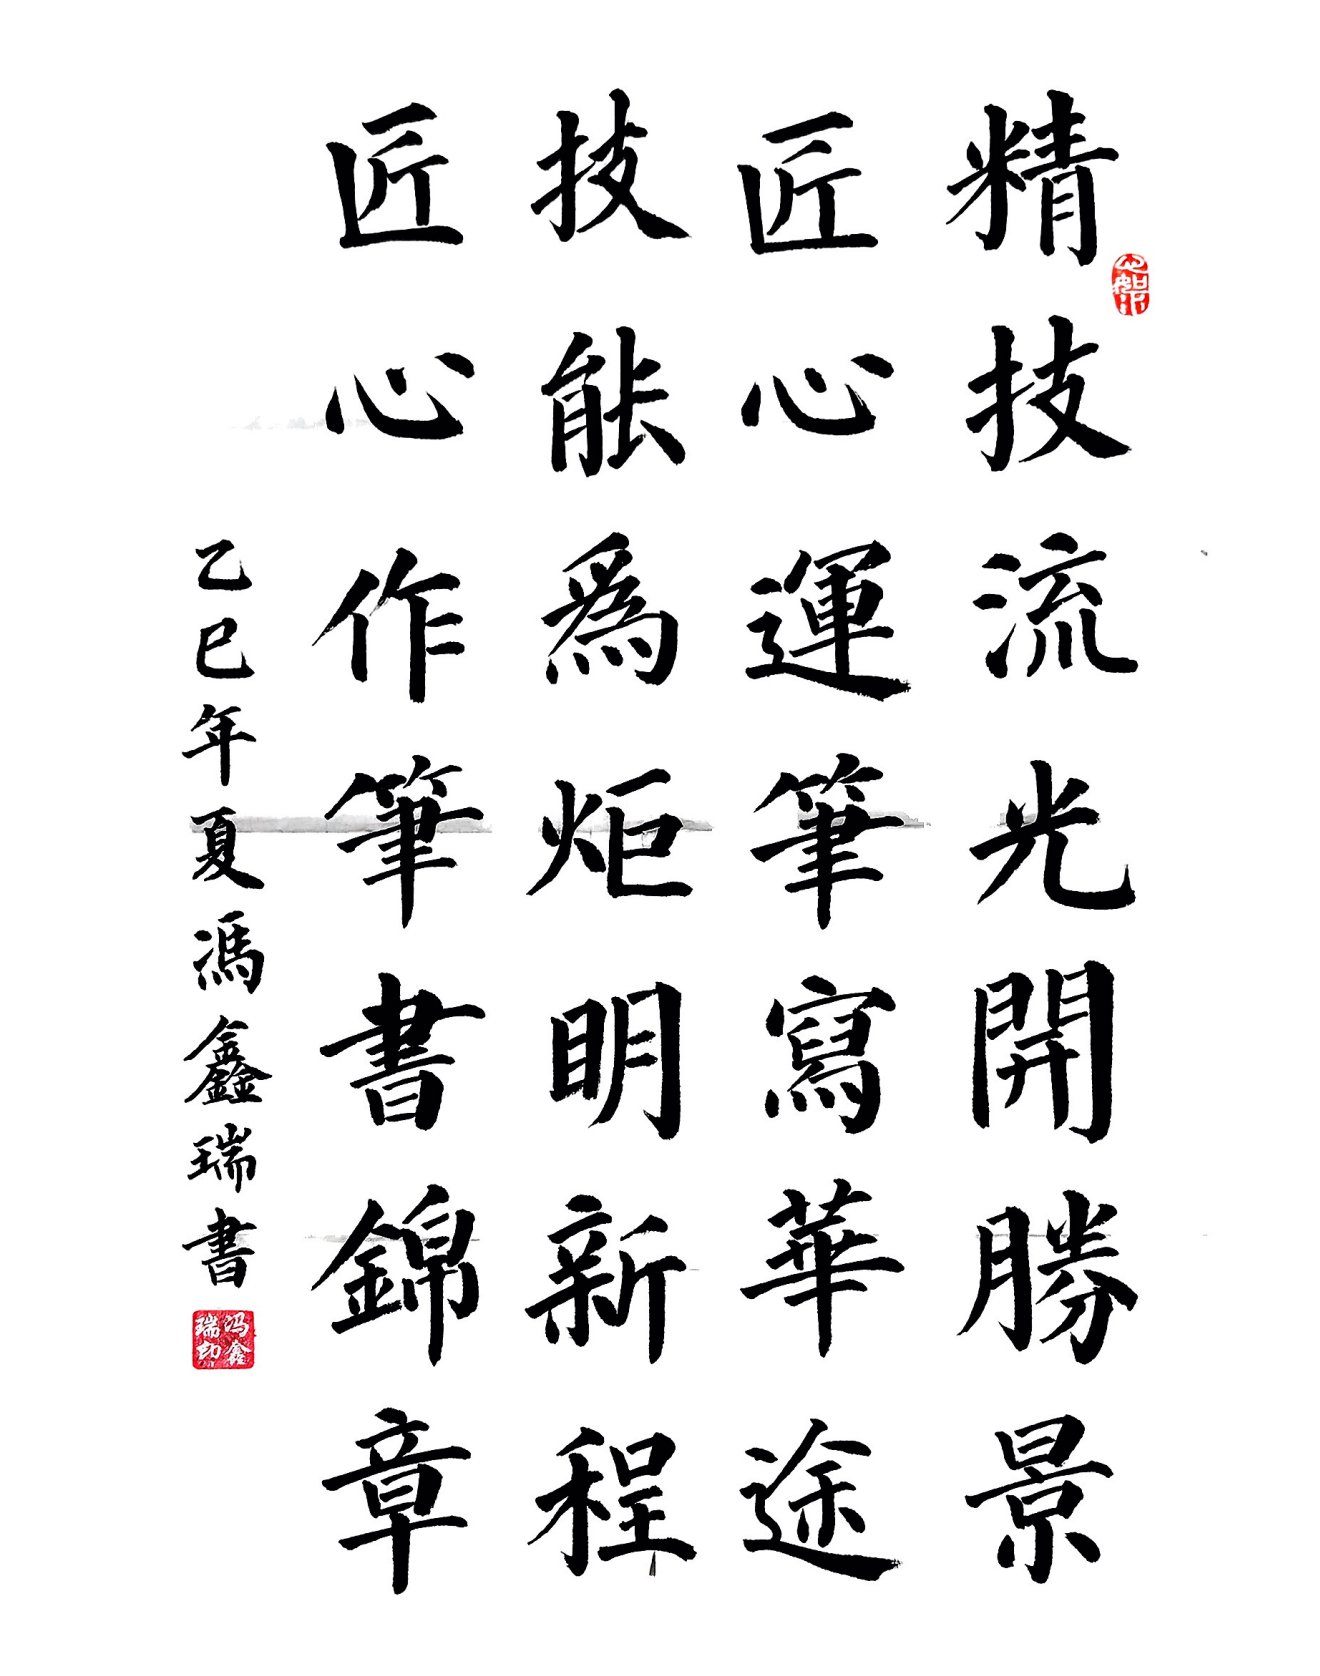 精技流光開勝景
匠心運筆寫華途
技能爲炬明新程
匠心作筆書錦章
乙巳年夏馮鑫瑞書
冯鑫
瑞印